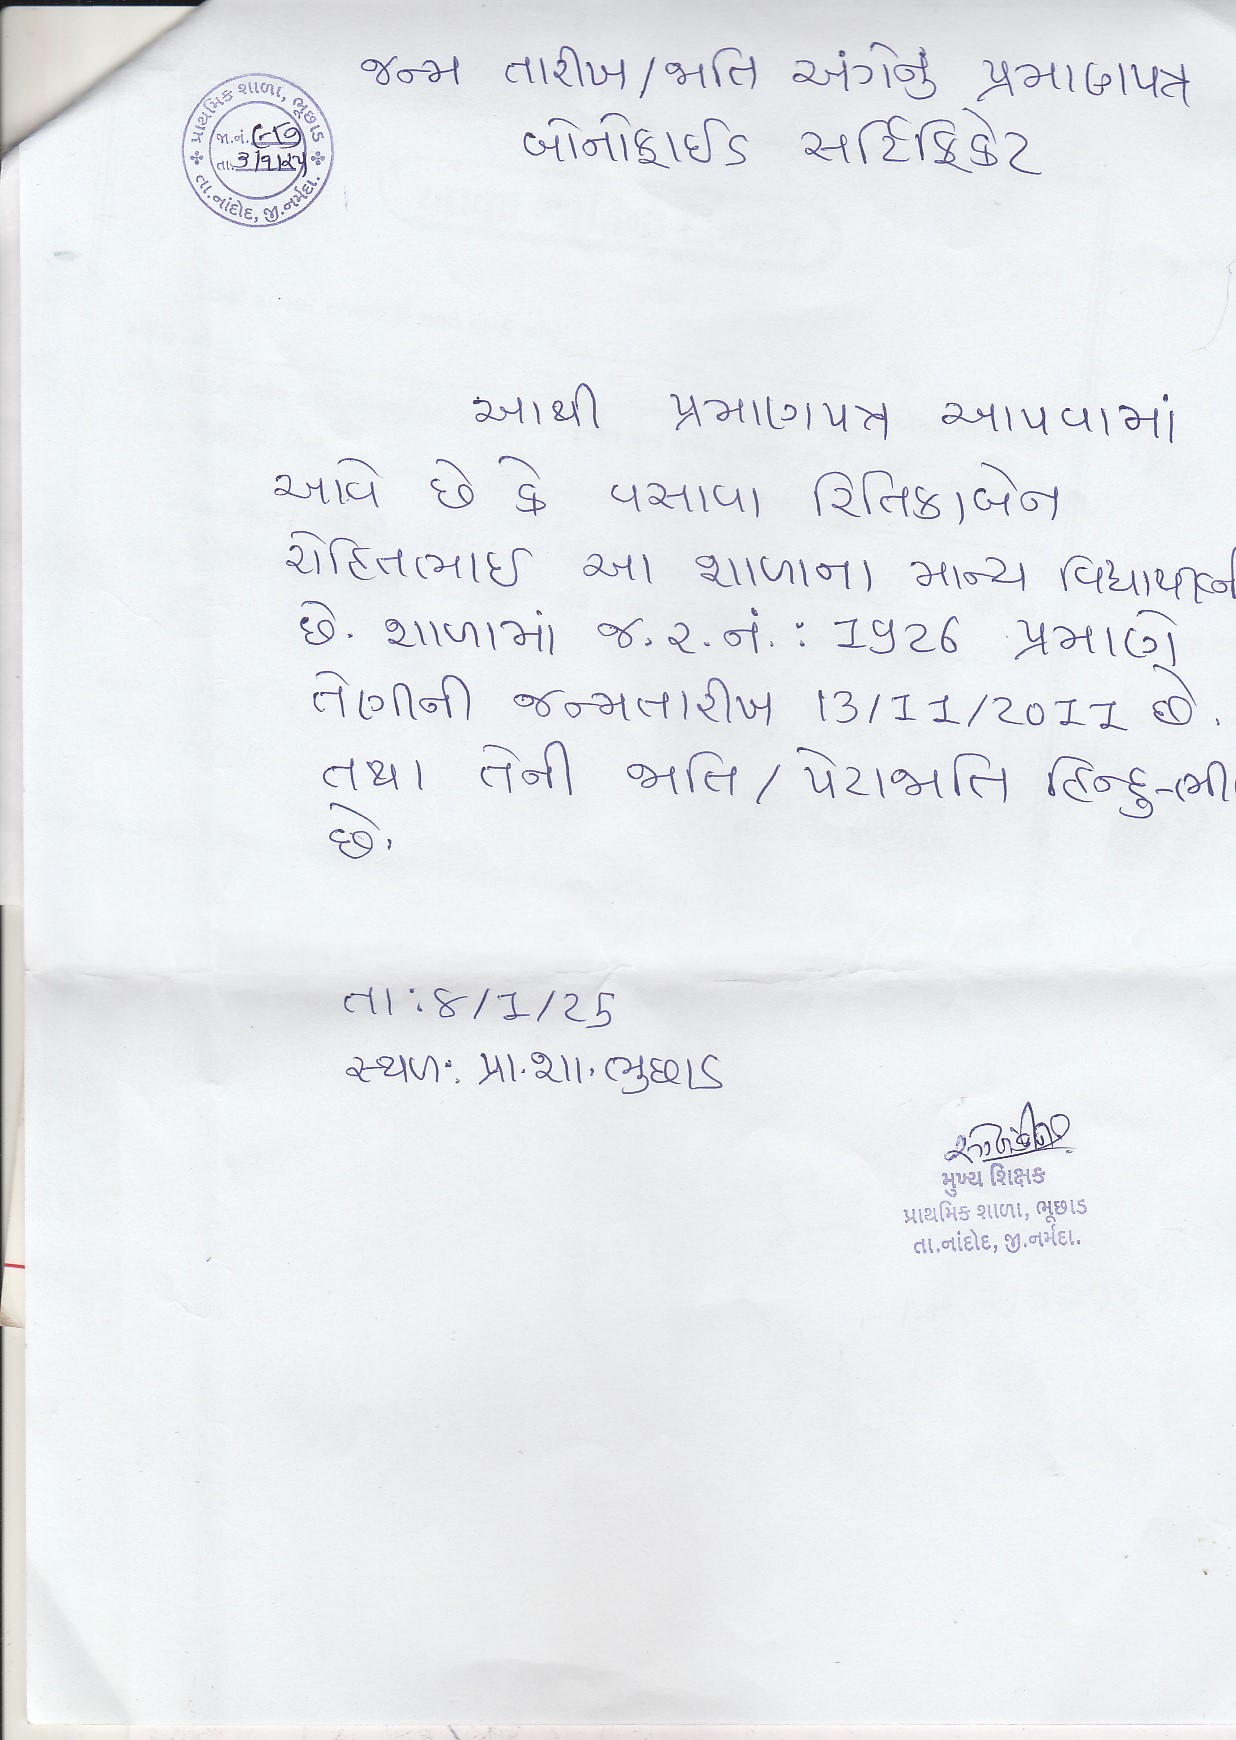 જન્મ તારીખ/જાતિ અંગેનું પ્રમાણપત્ર
બોનોફાઈડ સર્ટિફિકેટ
પ્રાથમિક શાળા, ભૂછાડ
જા.નં.
તા. 3/1/25
તા.નાંદોદ, જી.નર્મદા.
આથી પ્રમાણપત્ર આપવામાં
આવે છે કે વસાવા રિતિકાબેન
રોહિતભાઈ આ શાળાના માન્ય વિદ્યાર્થીની
છે. શાળામાં જ.ર.નં. : 1926 પ્રમાણે
તેણીની જન્મતારીખ 13/11/2011 છે.
તથા તેની જાતિ/પેટાજાતિ હિન્દુ-ભી
છે.
તા:૪/1/25
સ્થળ: પ્રા.શા.ભુછાડ
મુખ્ય શિક્ષક
પ્રાથમિક શાળા, ભૂછાડ
તા.નાંદોદ, જી.નર્મદા.